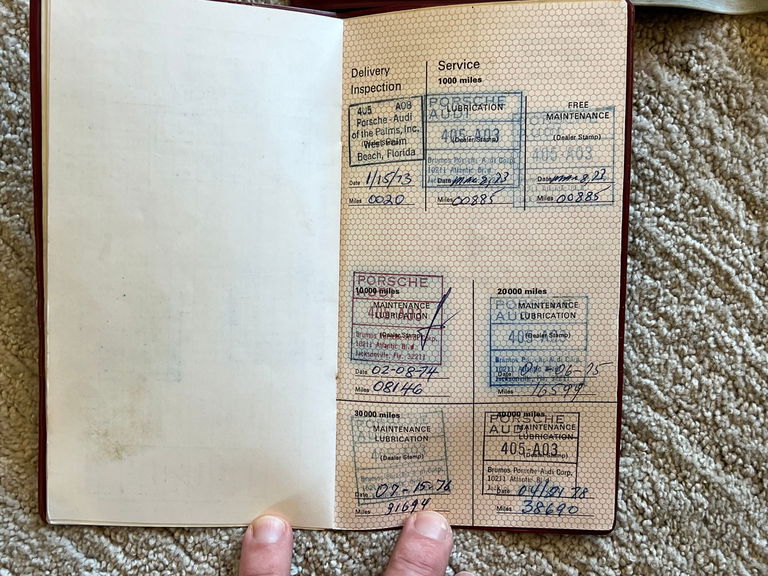 Delivery
Inspection
405 A03
Porsche-Audi
of the Palms, Inc.
West Palm
Beach, Florida
Date 1/15/73
Miles 0020
Service
1000 miles
PORSCHE
AUDI
LUBRICATION
405-A03
(Dealer Stamp)
Brumos Porsche Audi Corp.
10211 Atlantic Blvd.
Date Mar 8, 73
Miles 00885
FREE
MAINTENANCE
405-A03
(Dealer Stamp)
Date Mar 8, 73
Miles 00885
PORSCHE
10000 miles
MAINTENANCE
LUBRICATION
(Dealer Stamp)
Brumos Porsche Audi Corp.
10211 Atlantic Blvd.
Jacksonville, Fla. 32211
Date 02-08-74
Miles 08146
20000 miles
MAINTENANCE
LUBRICATION
(Dealer Stamp)
Brumos Porsche Audi Corp.
10211 Atlantic Blvd.
Jacksonville,
Date
Miles 16599
30000 miles
MAINTENANCE
LUBRICATION
(Dealer Stamp)
Date 07-15-76
Miles 31694
40000 miles
PORSCHE
AUDI
MAINTENANCE
LUBRICATION
405-A03
(Dealer Stamp)
Brumos Porsche Audi Corp.
Date 04/21 78
Miles 38690